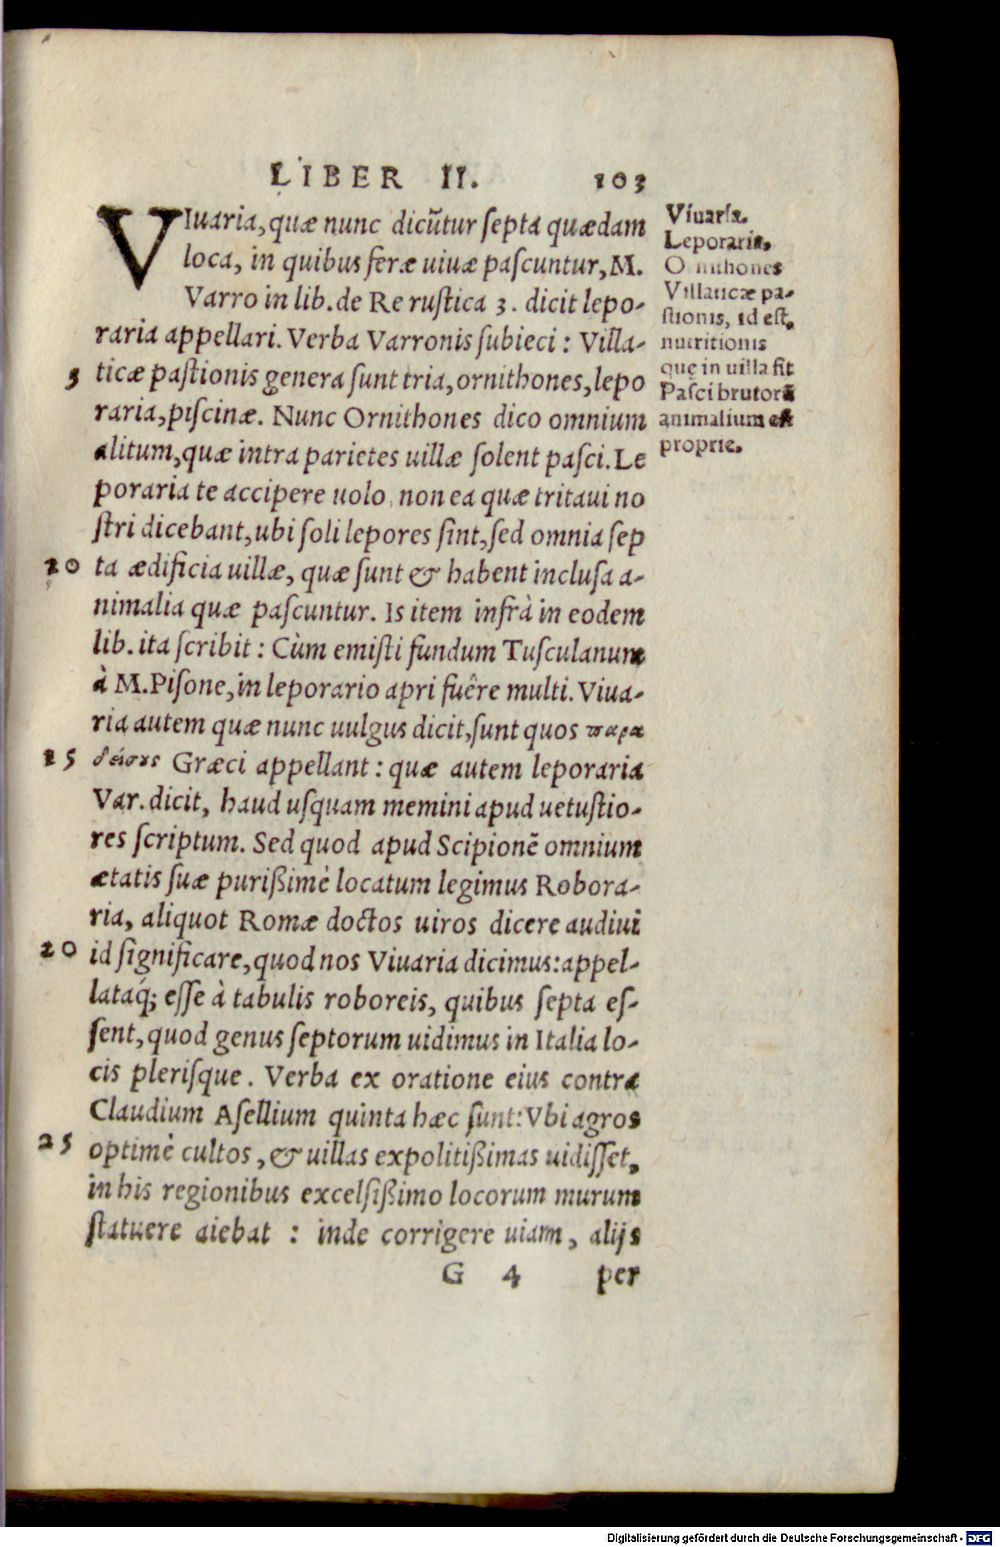 LIBER II. 103
VIuaria, quæ nunc dicũtur ſepta quædam
loca, in quibus feræ uiuæ paſcuntur, M.
Varro in lib. de Re ruſtica 3. dicit lepo-
raria appellari. Verba Varronis ſubieci: Villa-
5 ticæ paſtionis genera ſunt tria, ornithones, lepo
raria, piſcinæ. Nunc Ornithones dico omnium
alitum, quæ intra parietes uillæ ſolent paſci. Le
poraria te accipere uolo, non ea quæ tritaui no
ſtri dicebant, ubi ſoli lepores ſint, ſed omnia ſep
10 ta ædificia uillæ, quæ ſunt & habent incluſa a-
nimalia quæ paſcuntur. Is item infrà in eodem
lib. ita ſcribit: Cùm emiſti fundum Tuſculanum
à M. Piſone, in leporario apri fuêre multi. Viua-
ria autem quæ nunc uulgus dicit, ſunt quos παρα
15 δείσους Græci appellant: quæ autem leporaria
Var. dicit, haud uſquam memini apud uetuſtio-
res ſcriptum. Sed quod apud Scipionẽ omnium
ætatis ſuæ purißimè locatum legimus Robora-
ria, aliquot Romæ doctos uiros dicere audiui
20 id ſignificare, quod nos Viuaria dicimus: appel-
lataq́; eſſe à tabulis roboreis, quibus ſepta eſ-
ſent, quod genus ſeptorum uidimus in Italia lo-
cis pleriſque. Verba ex oratione eius contra
Claudium Aſellium quinta hæc ſunt: Vbi agros
25 optimè cultos, & uillas expolitißimas uidiſſet,
in his regionibus excelſißimo locorum murum
ſtatuere aiebat: inde corrigere uiam, alijs
G 4 per
Viuaria.
Leporaria.
Ornithones
Villaticæ pa-
ſtionis, id eſt,
nutritionis
quę in uilla fit
Paſci brutorũ
animalium eſt
proprie.
Digitalisierung gefördert durch die Deutsche Forschungsgemeinschaft - DFG